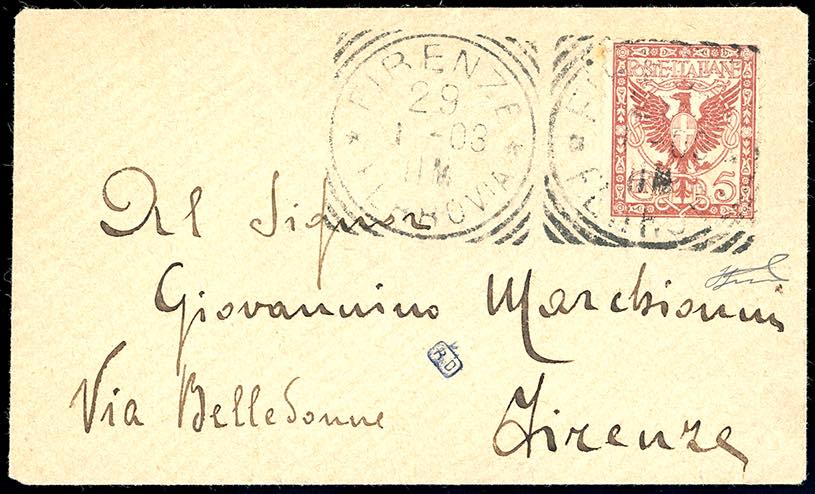 FIRENZE
29
1 -03
11M
FERROVIA
POSTE·ITALIANE
5
11M
Al Signor
Giovannino Marchionni
Via Belledonne
Firenze